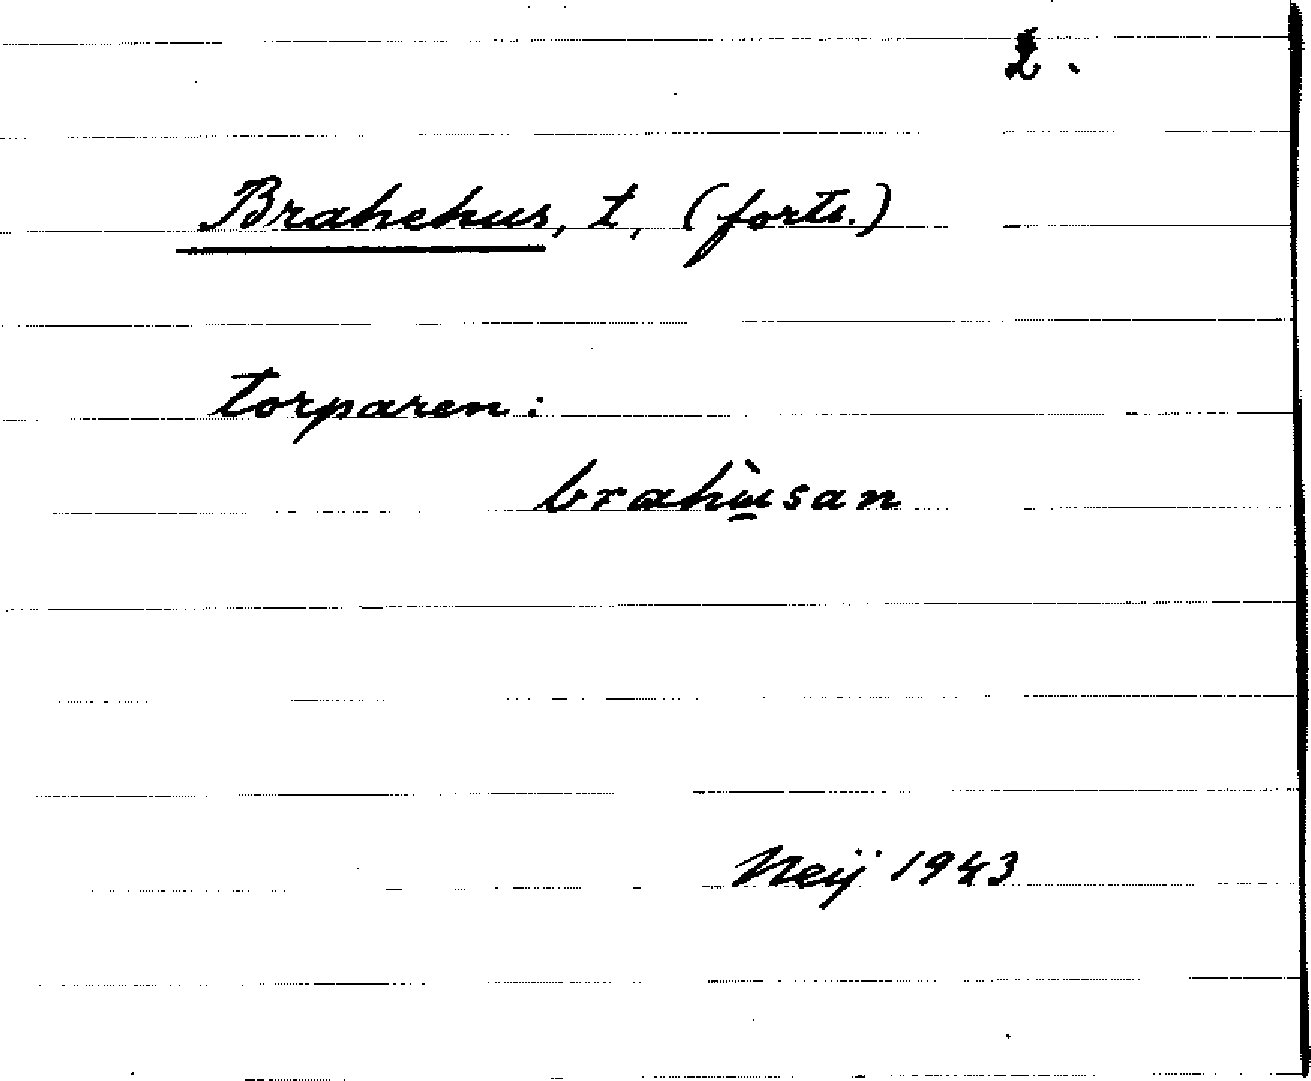 2.
Brahehus, t, (forts.)
torparen:
brahù̠san
Neij 1943